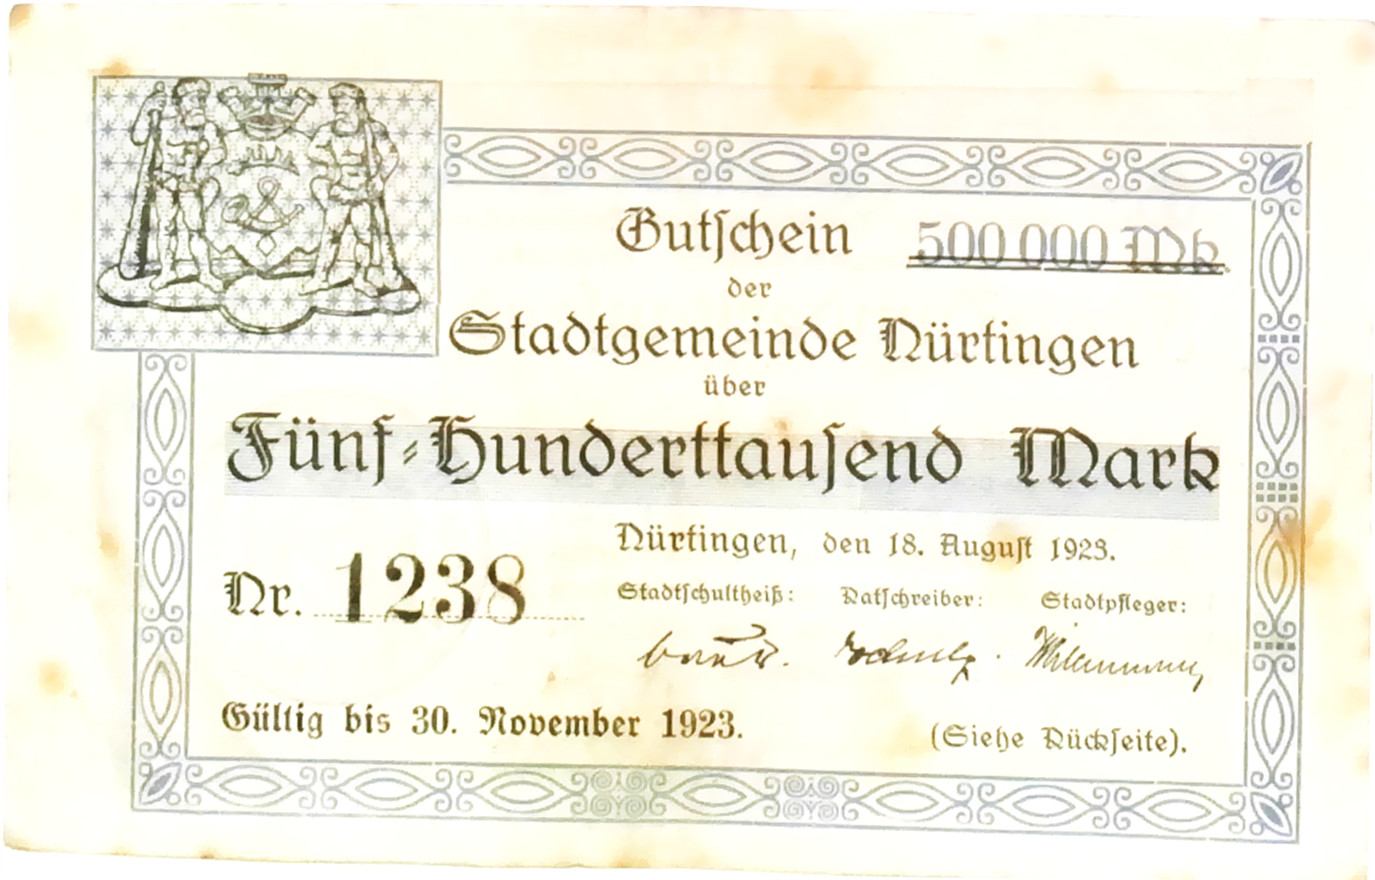 Gutschein 500 000 Mk.
der
Stadtgemeinde Nürtingen
über
Fünf-Hunderttausend Mark
Nürtingen, den 18. August 1923.
Nr. 1238
Stadtschultheiß: Ratschreiber: Stadtpfleger:
Gültig bis 30. November 1923.
(Siehe Rückseite).